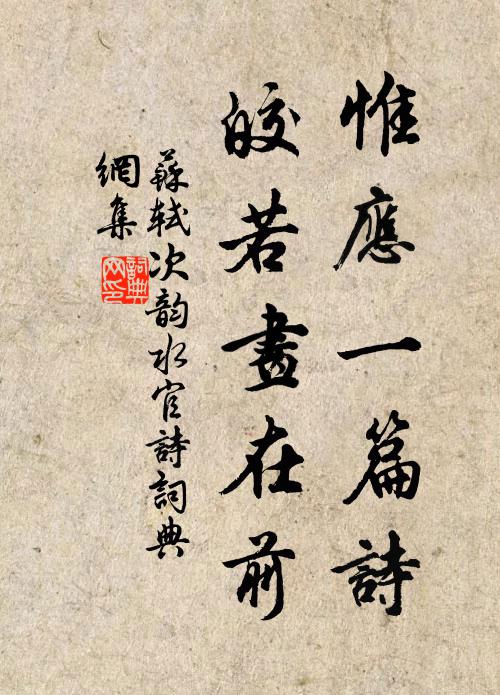 惟應一篇詩
皎若畫在前
蘇軾次韵水官詩詞典
網集
詞典
网印